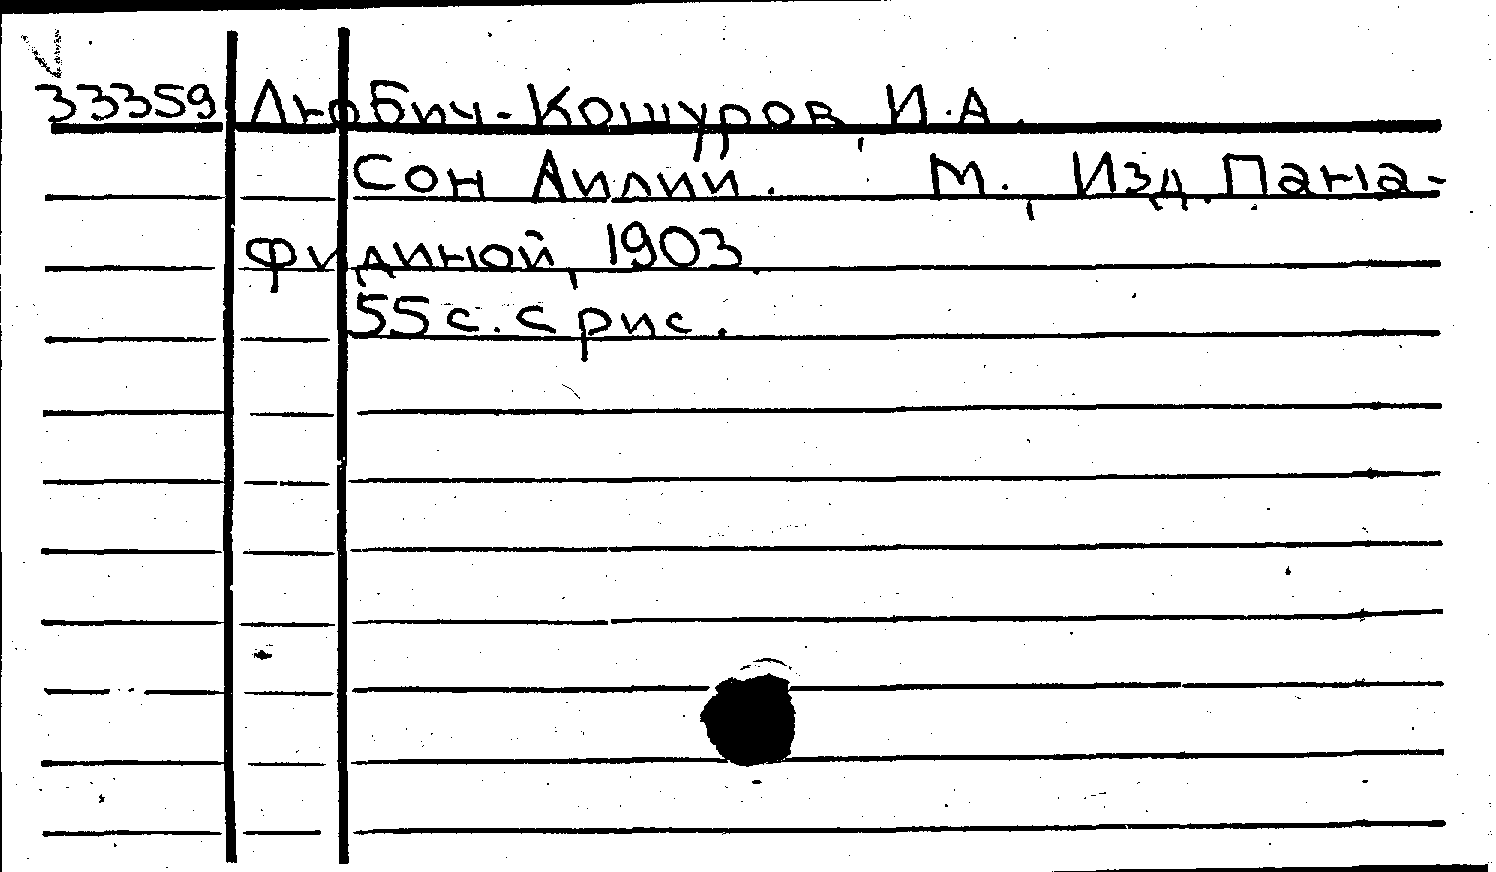 33359 Любич-Кошуров, И.А.
Сон Лилии. М., Изд. Пана-
фидиной, 1903.
55 с. с рис.